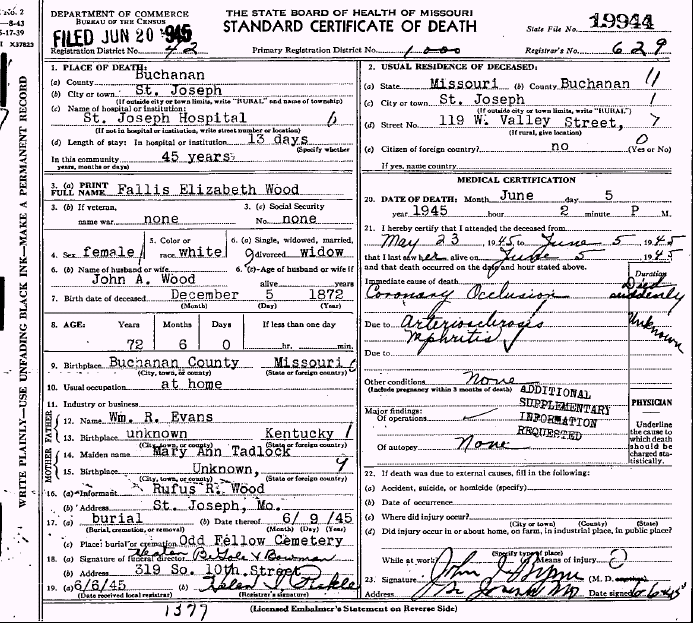 DEPARTMENT OF COMMERCE
BUREAU OF THE CENSUS
THE STATE BOARD OF HEALTH OF MISSOURI
STANDARD CERTIFICATE OF DEATH
State File No. 19944
FILED JUN 20 1945
Registration District No. 42
Primary Registration District No. 1000
Registrar's No. 629
WRITE PLAINLY—USE UNFADING BLACK INK—MAKE A PERMANENT RECORD
1. PLACE OF DEATH:
(a) County Buchanan
(b) City or town St. Joseph
(If outside city or town limits, write "RURAL" and name of township)
(c) Name of hospital or institution:
St. Joseph Hospital
(If not in hospital or institution, write street number or location)
(d) Length of stay: In hospital or institution? 13 days
(Specify whether
In this community 45 years
years, months or days)
3. (a) PRINT FULL NAME Fallis Elizabeth Wood
3. (b) If veteran, name war none
3. (c) Social Security No. none
4. Sex female
5. Color or race white
6. (a) Single, widowed, married, divorced widow
6. (b) Name of husband or wife John A. Wood
6. (c) Age of husband or wife if alive years
7. Birth date of deceased December 5 1872
(Month) (Day) (Year)
8. AGE: Years Months Days If less than one day
72 6 0 hr. min.
9. Birthplace Buchanan County Missouri
(City, town, or county) (State or foreign country)
10. Usual occupation at home
11. Industry or business
FATHER
12. Name Wm. R. Evans
13. Birthplace unknown Kentucky
(City, town, or county) (State or foreign country)
MOTHER
14. Maiden name Mary Ann Tadlock
15. Birthplace Unknown,
(City, town, or county) (State or foreign country)
16. (a) Informant Rufus R. Wood
(b) Address St. Joseph, Mo.
17. (a) burial (b) Date thereof 6/ 9 /45
(Burial, cremation, or removal) (Month) (Day) (Year)
(c) Place: burial or cremation Odd Fellow Cemetery
18. (a) Signature of funeral director Heaton BeGole & Bowman
(b) Address 319 So. 10th Street
19. (a) 6/6/45 (b) Helen
(Date received local registrar) (Registrar's signature)
1377
2. USUAL RESIDENCE OF DECEASED:
(a) State Missouri (b) County Buchanan 11
(c) City or town St. Joseph 1
(If outside city or town limits, write "RURAL")
(d) Street No. 119 W. Valley Street, 7
(If rural, give location)
(e) Citizen of foreign country? no 0 (Yes or No)
If yes, name country
MEDICAL CERTIFICATION
20. DATE OF DEATH: Month June day 5
year 1945 hour 2 minute P M.
21. I hereby certify that I attended the deceased from
May 23 1945 to June 5 1945
that I last saw her alive on June 5 1945
and that death occurred on the date and hour stated above.
Duration
Immediate cause of death Died suddenly
Coronary Occlusion
Due to Arteriosclerosis Unknown
Nphritis
Due to
Other conditions None
(Include pregnancy within 3 months of death)
ADDITIONAL
SUPPLEMENTARY
INFORMATION
REQUESTED
Major findings:
Of operations
Of autopsy None
PHYSICIAN
Underline the cause to which death should be charged statistically.
22. If death was due to external causes, fill in the following:
(a) Accident, suicide, or homicide (specify)
(b) Date of occurrence
(c) Where did injury occur?
(City or town) (County) (State)
(d) Did injury occur in or about home, on farm, in industrial place, in public place?
(Specify type of place)
While at work? (e) Means of injury
23. Signature John (M. D.
Address St Joseph Mo Date signed 6-6-45
(Licensed Embalmer's Statement on Reverse Side)